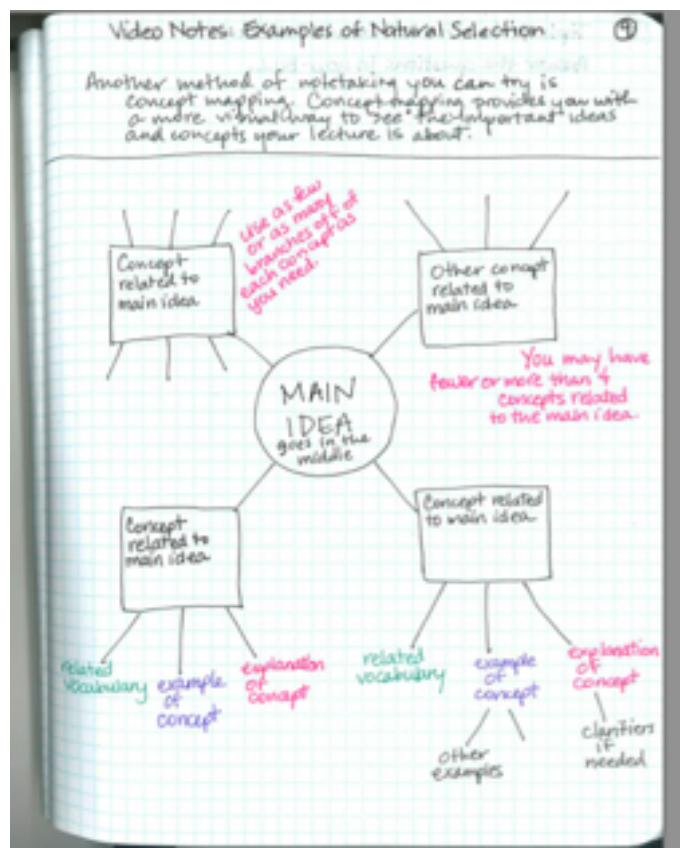 Video Notes: Examples of Natural Selection
9
Another method of notetaking you can try is
concept mapping. Concept mapping provides you with
a more visual way to see the important ideas
and concepts your lecture is about.
Use as few
or as many
branches off of
each concept as
you need.
Concept
related to
main idea
Other concept
related to
main idea
You may have
fewer or more than 4
concepts related
to the main idea.
MAIN
IDEA
goes in the
middle
Concept
related to
main idea
Concept related
to main idea
related
vocabulary
example
of
concept
explanation
of
concept
related
vocabulary
example
of
concept
explanation
of
concept
other
examples
clarifiers
if
needed